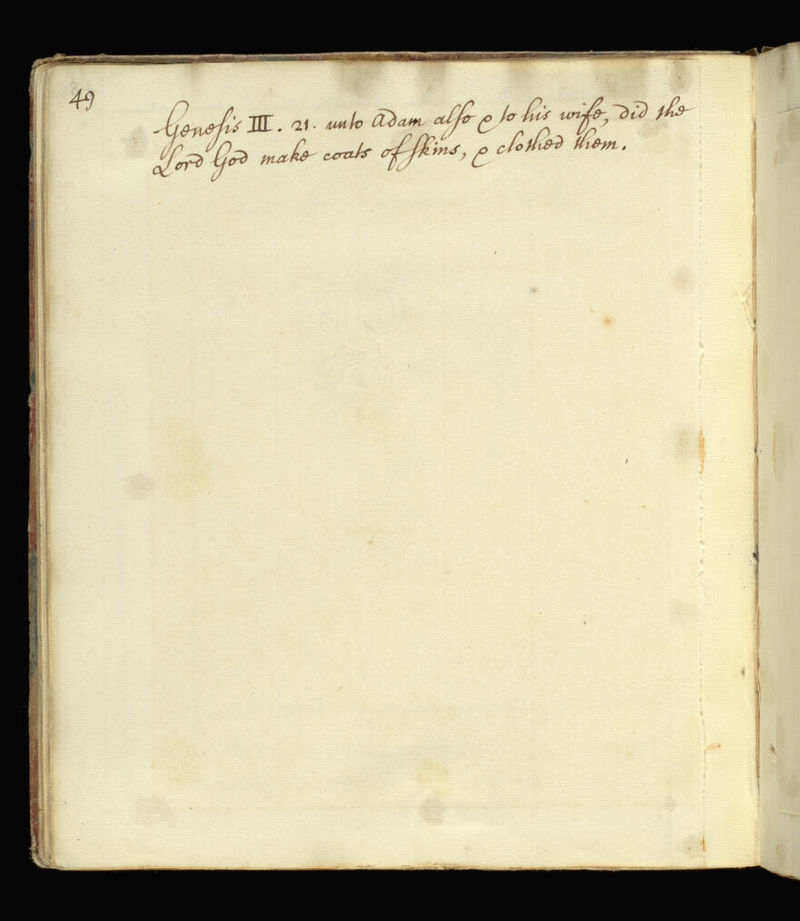 49
Genesis III. 21. unto Adam also & to his wife, did the
Lord God make coats of skins, & clothed them.